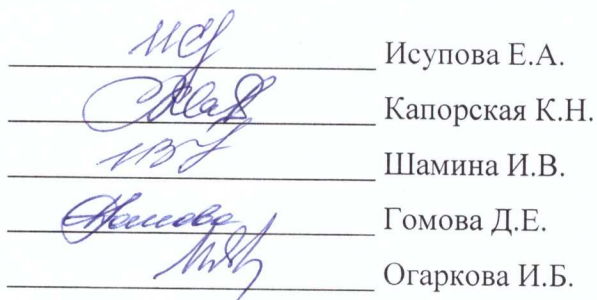 Исупова Е.А.
Капорская К.Н.
Шамина И.В.
Гомова Д.Е.
Огаркова И.Б.